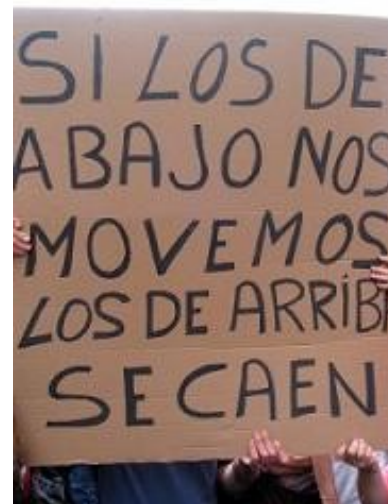 SI LOS DE
ABAJO NOS
MOVEMOS
LOS DE ARRIBA
SE CAEN